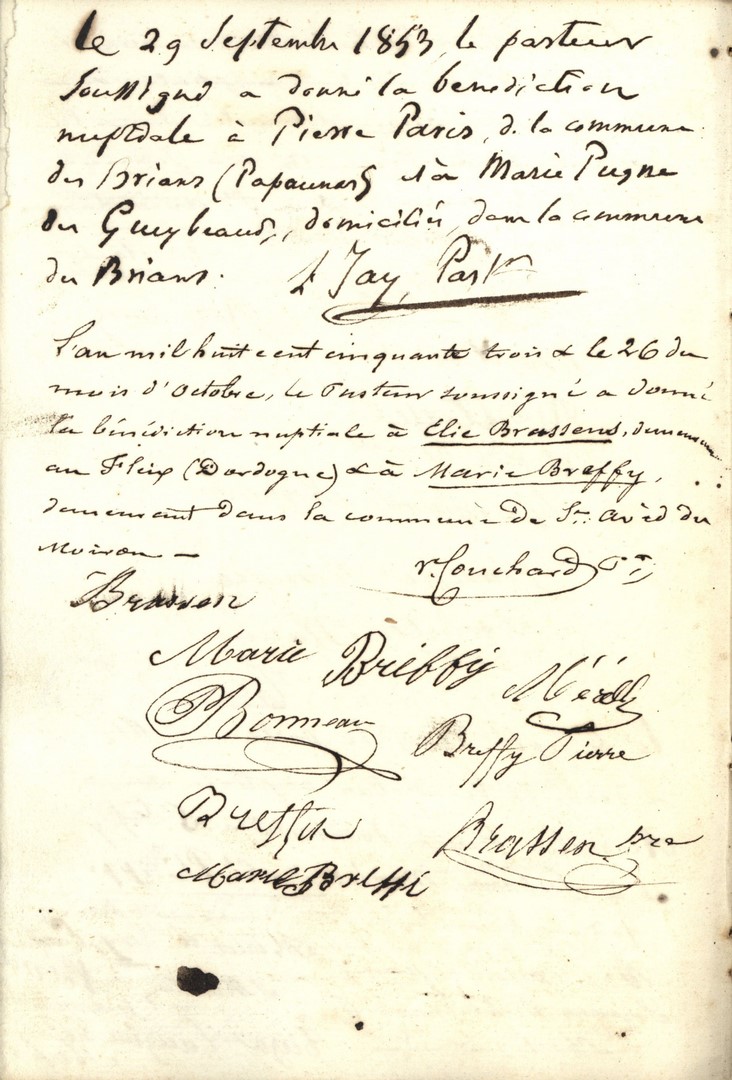 le 29 Septembre 1853, le pasteur
soussigné a donné la bénédiction
nuptiale à Pierre Paris, de la commune
des Brians (Papaunas) et à Marie Pugne
des Gueybeauds, domiciliés dans la commune
des Brians. Jay, Past
L'an mil huit cent cinquante trois & le 26 du
mois d'octobre, le Pasteur soussigné a donné
la bénédiction nuptiale à Elie Brassens, demeurant
au Fleix (Dordogne) & à Marie Breffy,
demeurant dans la commune de St. avid du
Moiron —
r. Couchard Pr
Brassen
Marie Briffy
PBonneau
Breffy Pierre
Brassen pre
Marie Breffi